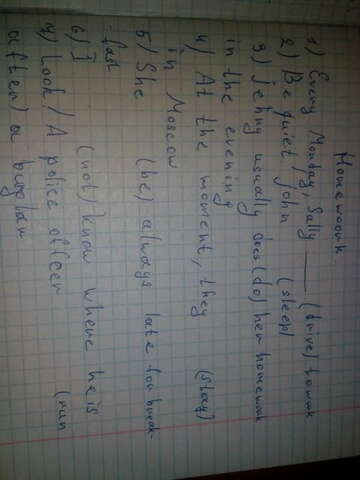 Homework
1) Every Monday, Sally ___ (drive) to work
2) Be quiet john (sleep)
3) Jenny usually does (do) her homework
in the evening
4) At the moment, they (stay)
in Moscow
5) She (be) always late for break-
fast
6) I (not) know where he is
7) Look! A police officer (run
after) a burglar